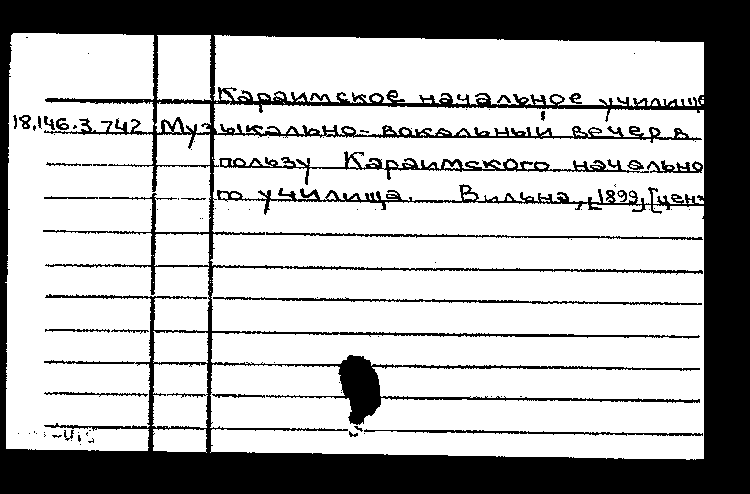 Караимское начальное училище
18.146.3.742 Музыкально-вокальный вечер в
пользу Караимского начально
го училища. Вильна, [1899] [ценз